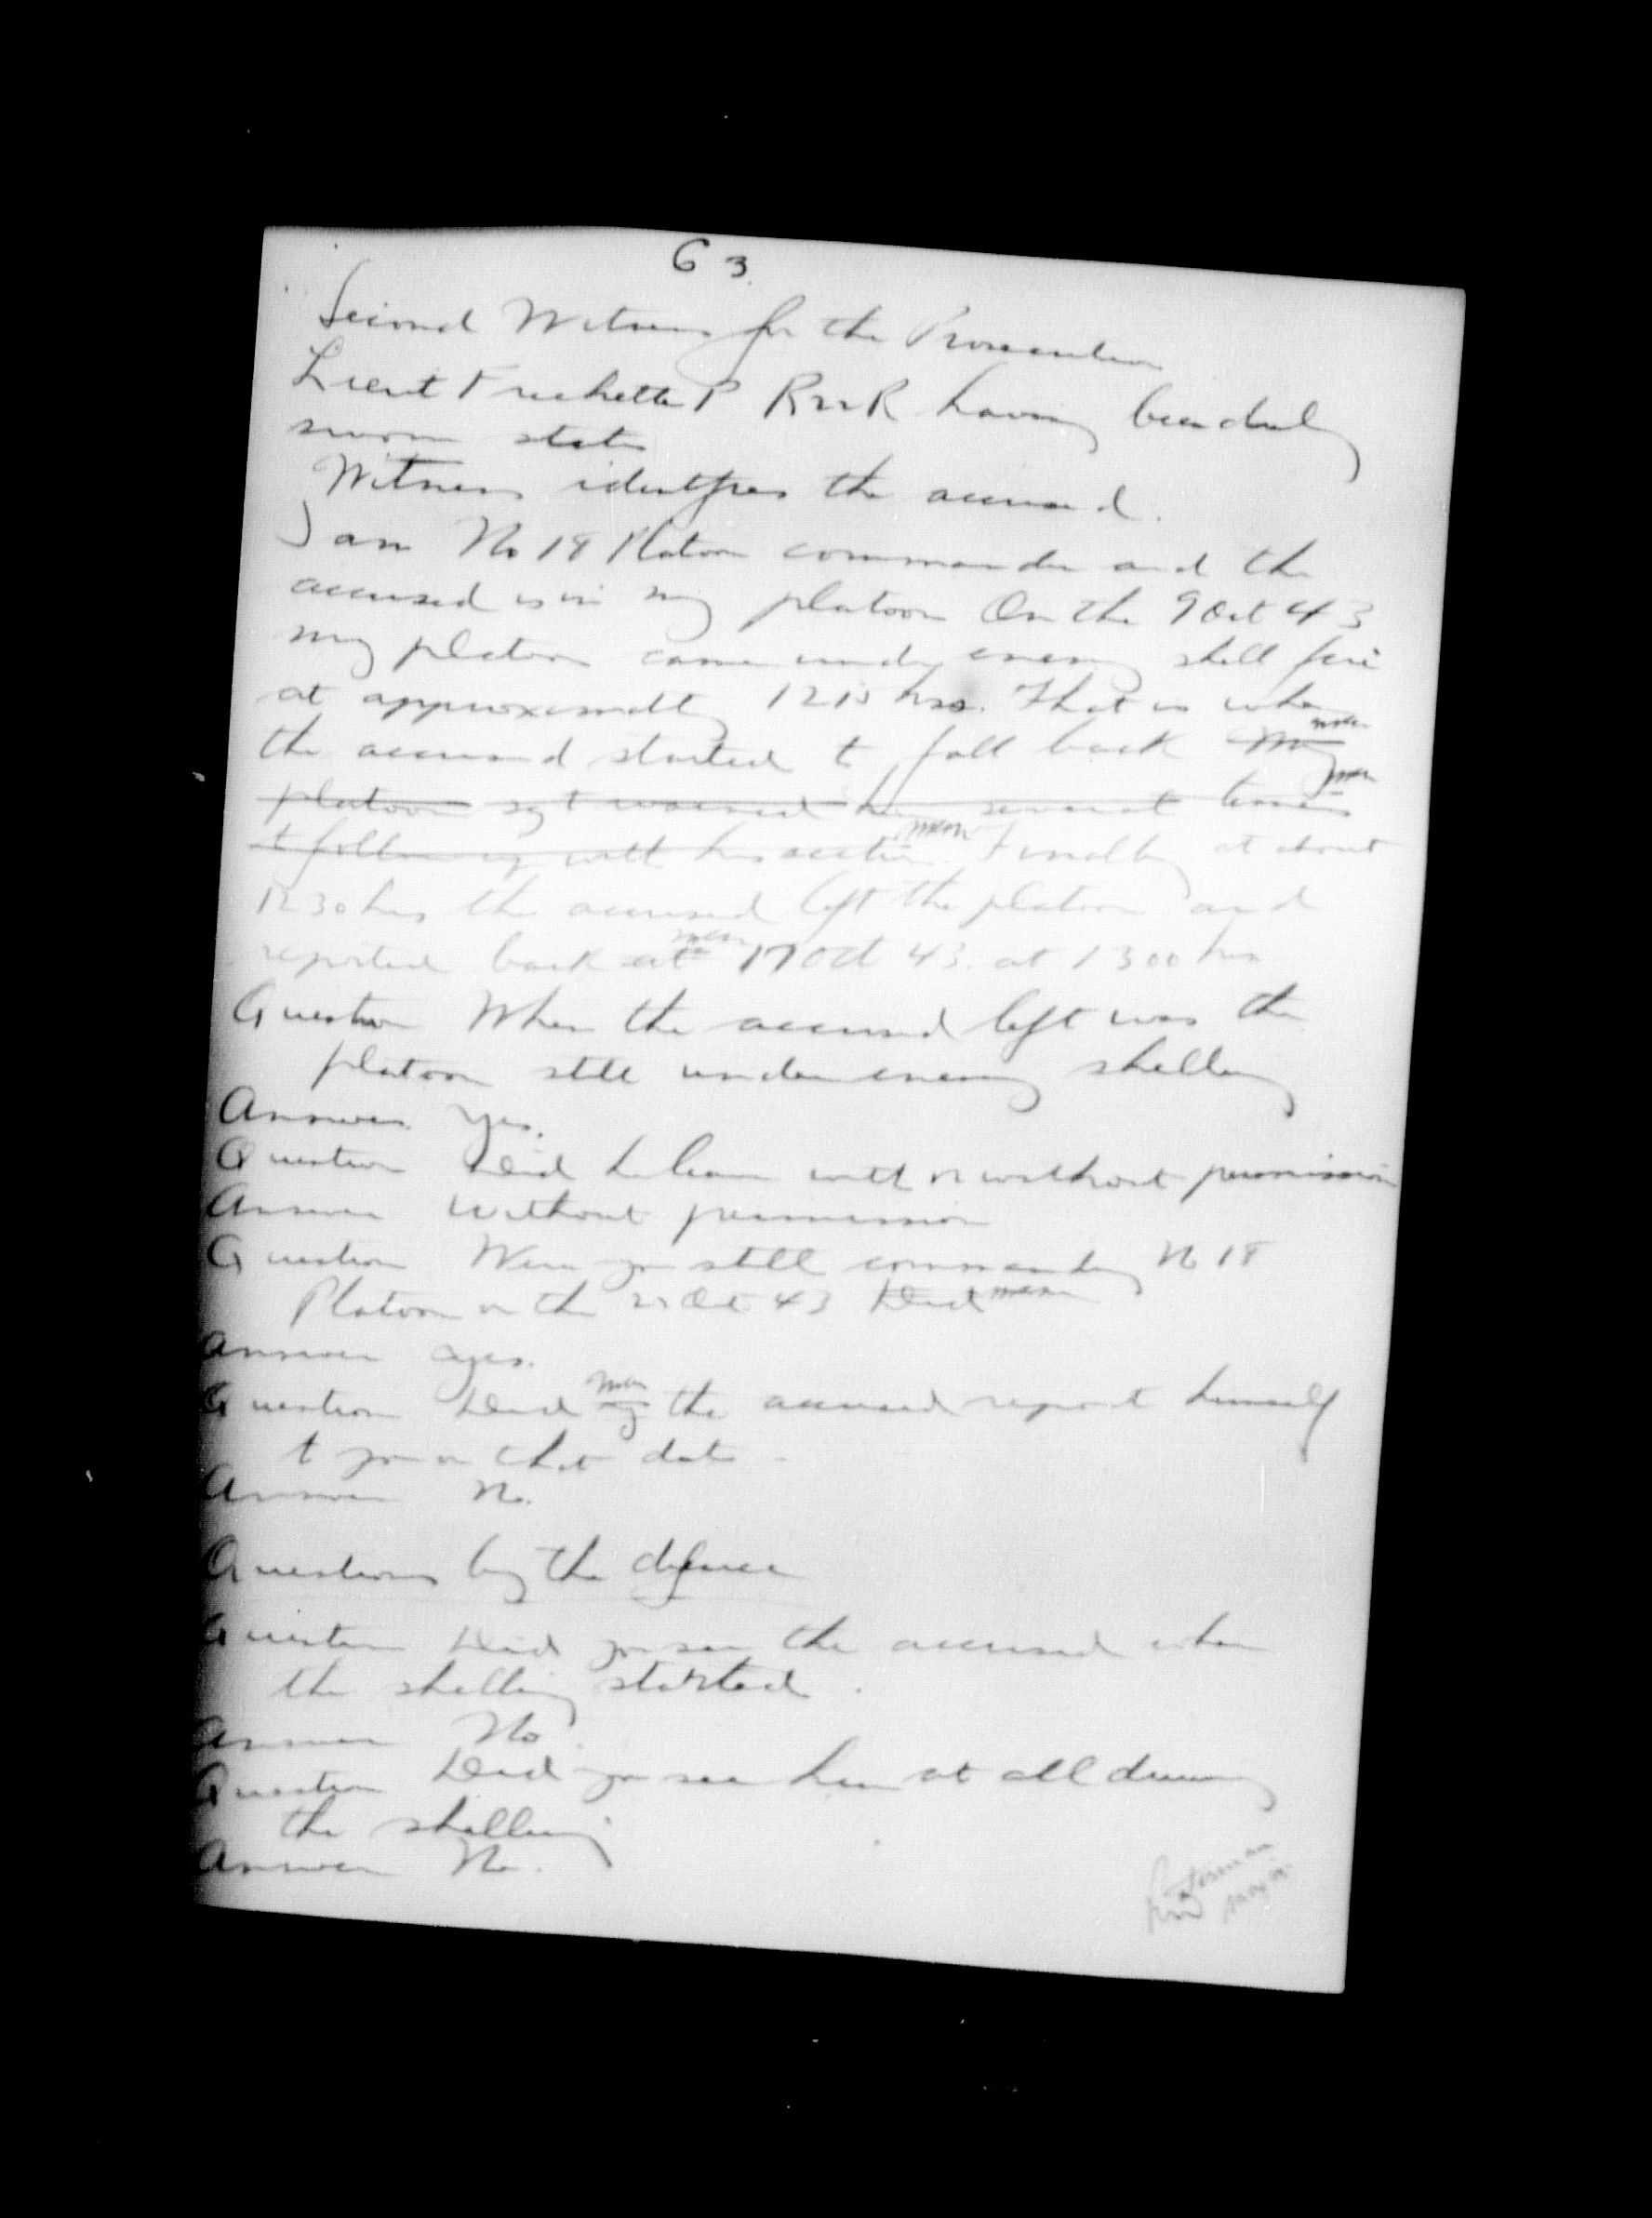 G 3.
Second Witness for the Prosecution
Lieut Frechette P R22R having been duly
sworn states
Witness identifies the accused.
I am No 18 Platoon commander and the
accused is in my platoon On the 9 Oct 43
my platoon came under enemy shell fire
at approximately 1215 hrs. That is when
the accused started to fall back My
platoon sgt warned him several times
to follow up with his section. Finally at about
1230 hrs the accused left the platoon and
reported back at 17 Oct 43. at 1300 hrs
Question When the accused left was the
platoon still under enemy shelling
Answer Yes.
Question Did he leave with or without permission
Answer Without permission
Question Were you still commanding No 18
Platoon on the Oct 43 Did
Answer Yes.
Question Did the accused report himself
to you on that date
Answer No.
Questions by the defence
Question Did you see the accused when
the shelling started.
Answer No.
Question Did you see him at all during
the shelling
Answer No.
Major